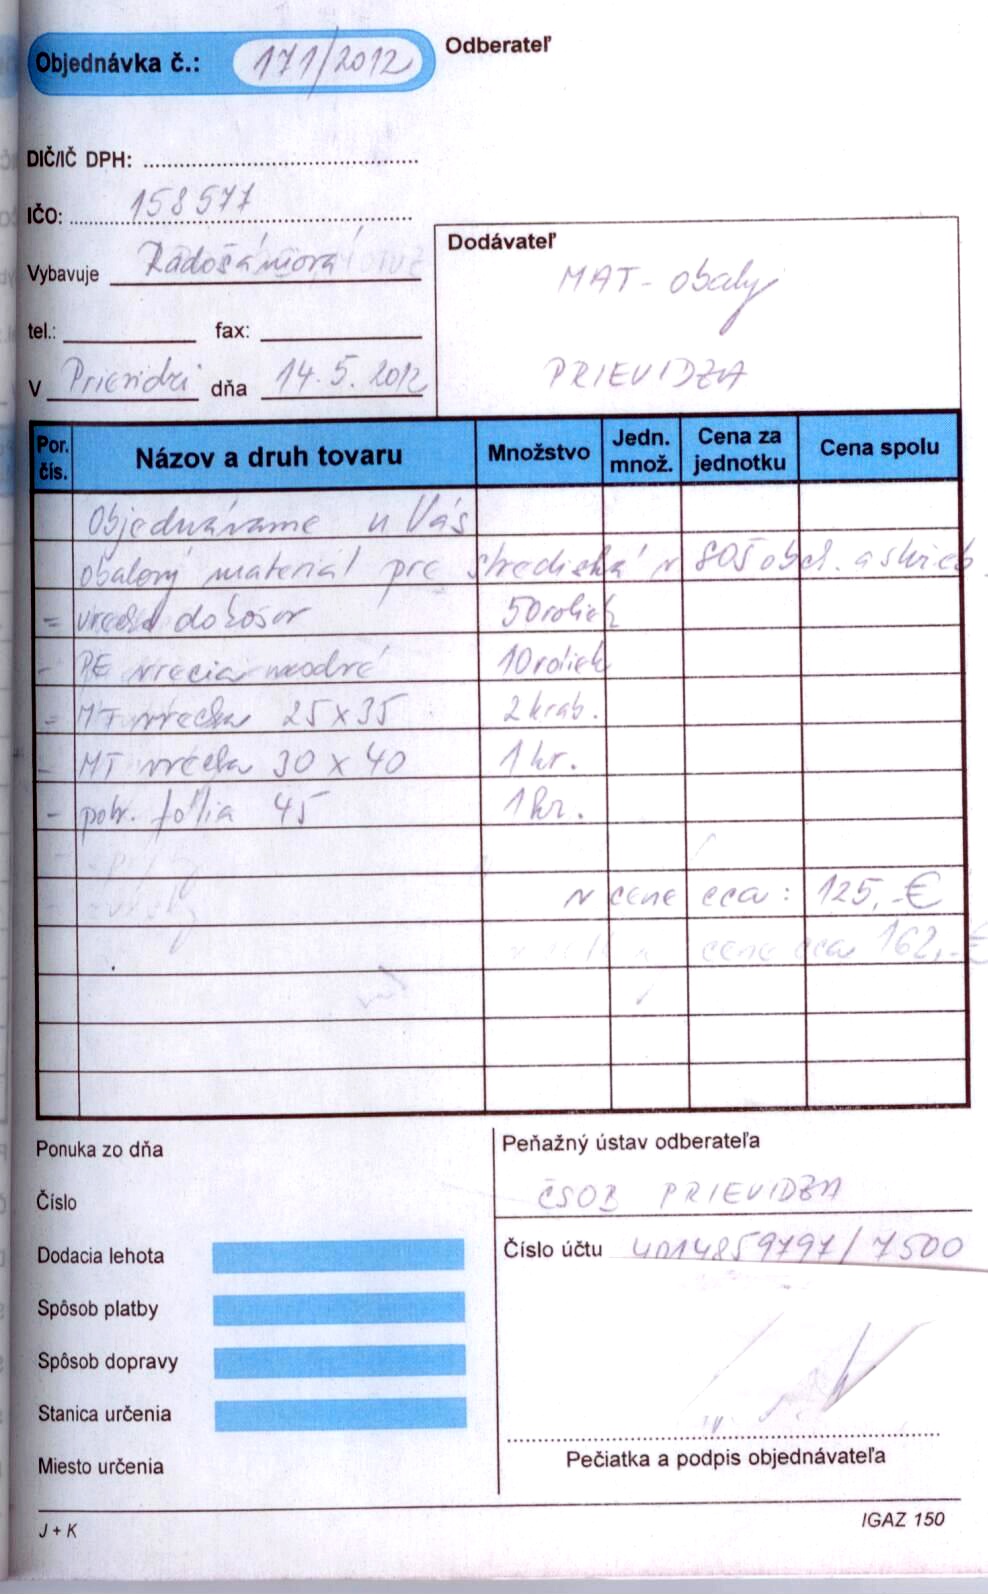 Objednávka č.: 171/2012
Odberateľ
DIČ/IČ DPH:
IČO: 158577
Vybavuje Radošániová
tel.: fax:
V Prievidzi dňa 14.5.2012
Dodávateľ
MAT - obaly
PRIEVIDZA
Por. čís. Názov a druh tovaru Množstvo Jedn. množ. Cena za jednotku Cena spolu
Objednávame u Vás
obalový materiál pre strediská v 805 obch. a
- vrecká do košov 50 roliek
- PE vrecia modré 10 roliek
- MT vrecka 25 x 35 2 krab.
- MT vrecka 30 x 40 1 kr.
- potr. fólia 45 1 kr.
v cene cca: 125,-€
cene cca 162,-€
Ponuka zo dňa
Číslo
Dodacia lehota
Spôsob platby
Spôsob dopravy
Stanica určenia
Miesto určenia
Peňažný ústav odberateľa
ČSOB PRIEVIDZA
Číslo účtu 4014859797/7500
Pečiatka a podpis objednávateľa
J + K
IGAZ 150